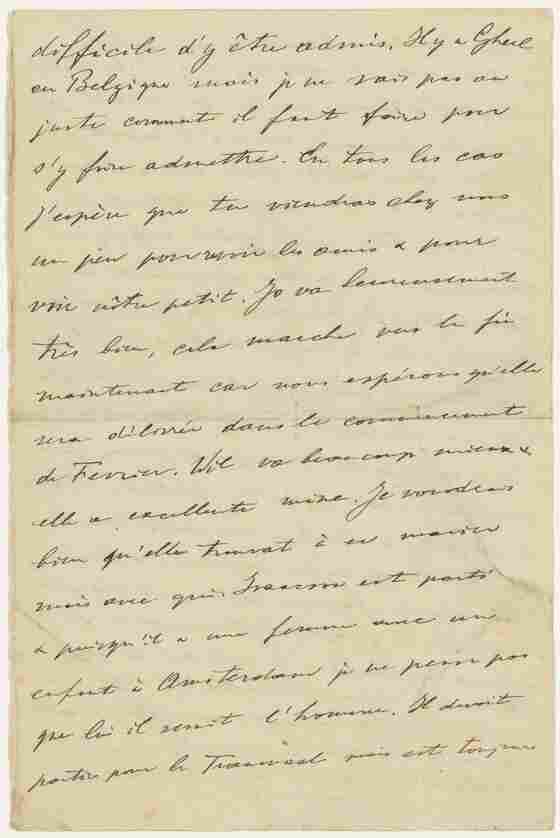 difficile d'y être admis. Il y a Gheel
en Belgique mais je ne sais pas au
juste comment il faut faire pour
s'y faire admettre. En tous les cas
j'espère que tu viendras chez nous
un peu pour revoir les amis & pour
voir nôtre petit. Jo va heureusement
très bien, cela marche vers la fin
maintenant car nous espérons qu'elle
sera délivrée dans le commencement
de Fevrier. Wil va beaucoup mieux &
elle a excellente mine. Je voudrais
bien qu'elle trouvat à se marier
mais avec qui. est parti
& puisqu'il a une femme avec un
enfant à Amsterdam je ne pense pas
que lui il serait l'homme. Il devait
partir pour le Transvaal mais est toujours